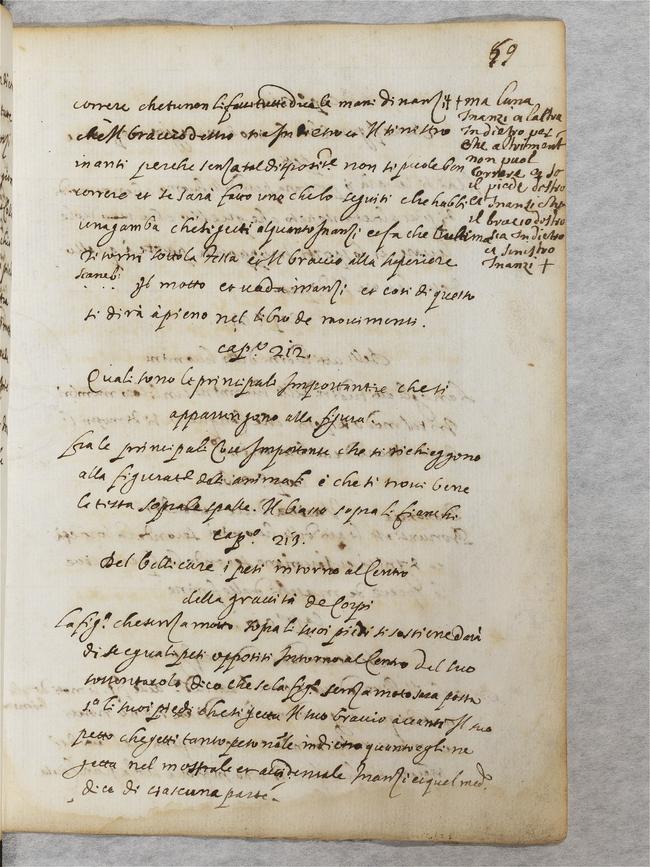 59
correre che tu non li facci tutte dua le mani dinanzi +
che il braccio destro sia indietro et il sinistro
inanti perche senza tal dispositne non si puole ben
correre et se sarà fatto uno che lo seguiti che habbi
una gamba che si getti alquanto inanzi et fa che l'ultima
si torni sotto la testa et il braccio alla superiore
scambi il motto et vada inanzi et cosi di questo
si dirà à pieno nel libro de movimenti.
+ ma l'una
inanzi e l'altra
indietro per
che altriment
non puol
correre et se
il piede destro
è inanzi che
il braccio destro
sia indietro
et sinistro
inanzi +
cap.º 212.
Quali sono le principali importantie che si
appartengono alla figura.
fra le principali cose importante che si richieggono
alla figurat.e deli animali è che si trovi bene
la testa sopra le spalle. Il busto sopra li fianchi
cap.º 213.
Del bellicare i pesi intorno al Centro
della gravità de Corpi
La fig.ª che senza motto sopra li suoi piedi si sostiene darà
di se eguali pesi oppositi intorno al Centro del suo
sostentacolo dico che se la fig.ª senza moto sara posta
s.ª li suoi piedi che si getta il suo braccio avanti il suo
petto che getti tanto peso nãle indietro quanto egli ne
getta nel naturale et accidentale inanzi et quel med.º
dico di ciascuna parte